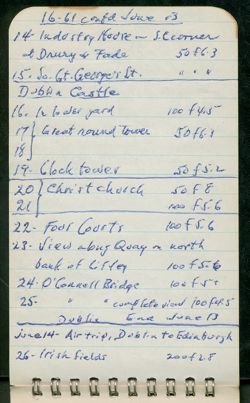 16-61 contd June 13
14- Industry House - S.E corner
at Drury & Fade 50 f6.3
15- So. Gt. George's St. " " "
Dublin Castle
16- In lower yard 100 f4.5
17 } Great round tower 50 f6.3
18
19- Clock tower 50 f5.2
20 } Christ church 50 f8
21 100 f5.6
22- Four Courts 100 f5.6
23- View along Quay on north
bank of Liffey 100 f5.6
24- O'Connell Bridge 100 f5
25- " " complete view 100 f4.5
Dublin End June 13
June 14- Air trip, Dublin to Edinburgh
26- Irish fields 200 f2.8